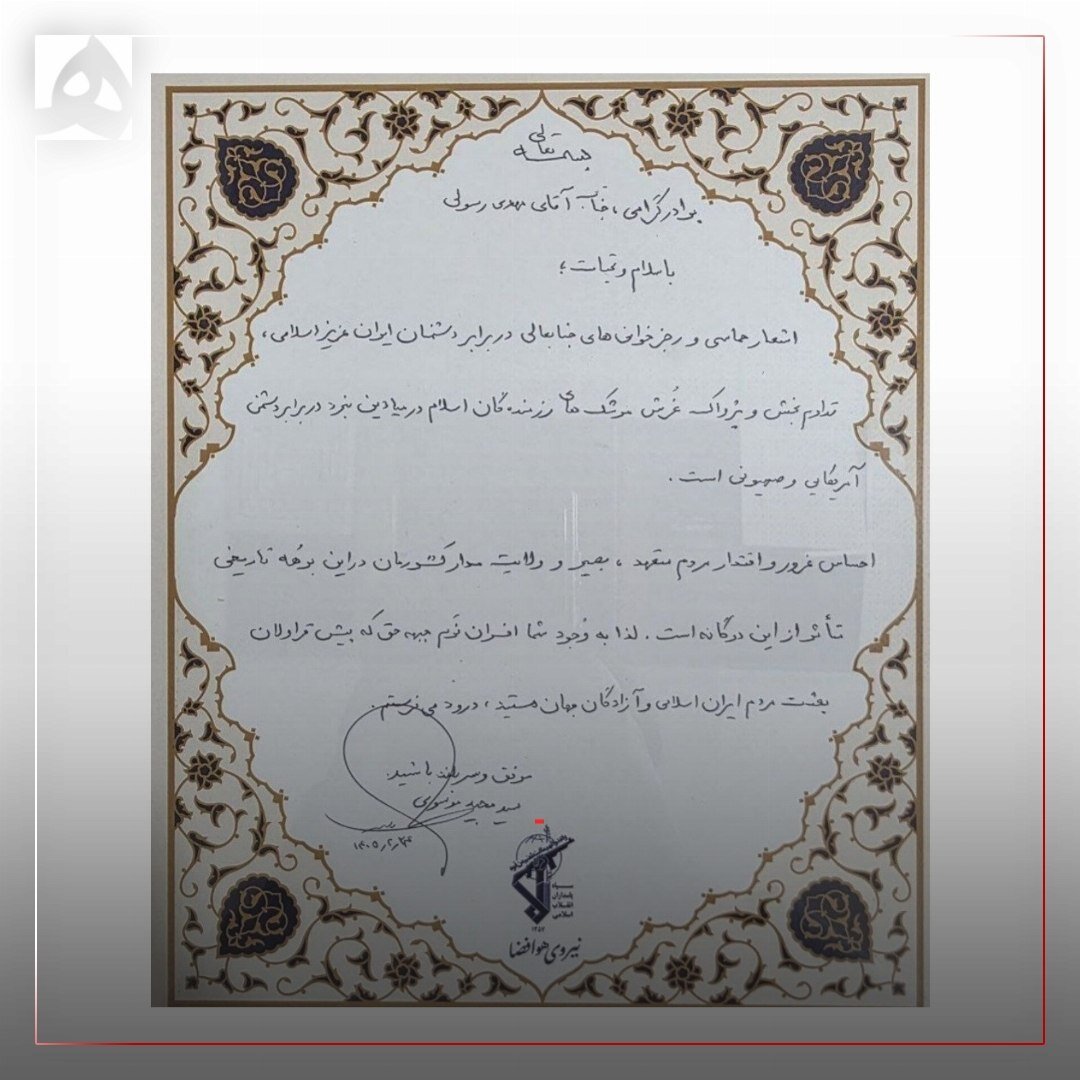 بسمه تعالی
برادر گرامی، جناب آقای مهدی رسولی
با سلام و تحیات؛
اشعار حماسی و رجزخوانی‌های جنابعالی در برابر دشمنان ایران عزیز اسلامی،
تداوم بخش و پژواک غُرش موشک های رزمنده گان اسلام در میادین نبرد در برابر دشمن
آمریکایی و صهیونی است.
احساس غرور و اقتدار مردم متعهد، بصیر و ولایت مدار کشورمان در این بُرهه تاریخی
متأثر از این دوگانه است. لذا به وُجود شما افسران نَرم جبهه حق که پیش قراولان
بعثت مردم ایران اسلامی و آزادگان جهان هستید، درود می فرستم.
موفق و سربلند باشید.
سید مجید موسوی
۱۴۰۵،۲،۲۴
سپاه
پاسداران
انقلاب
اسلامی
نیروی هوافضا